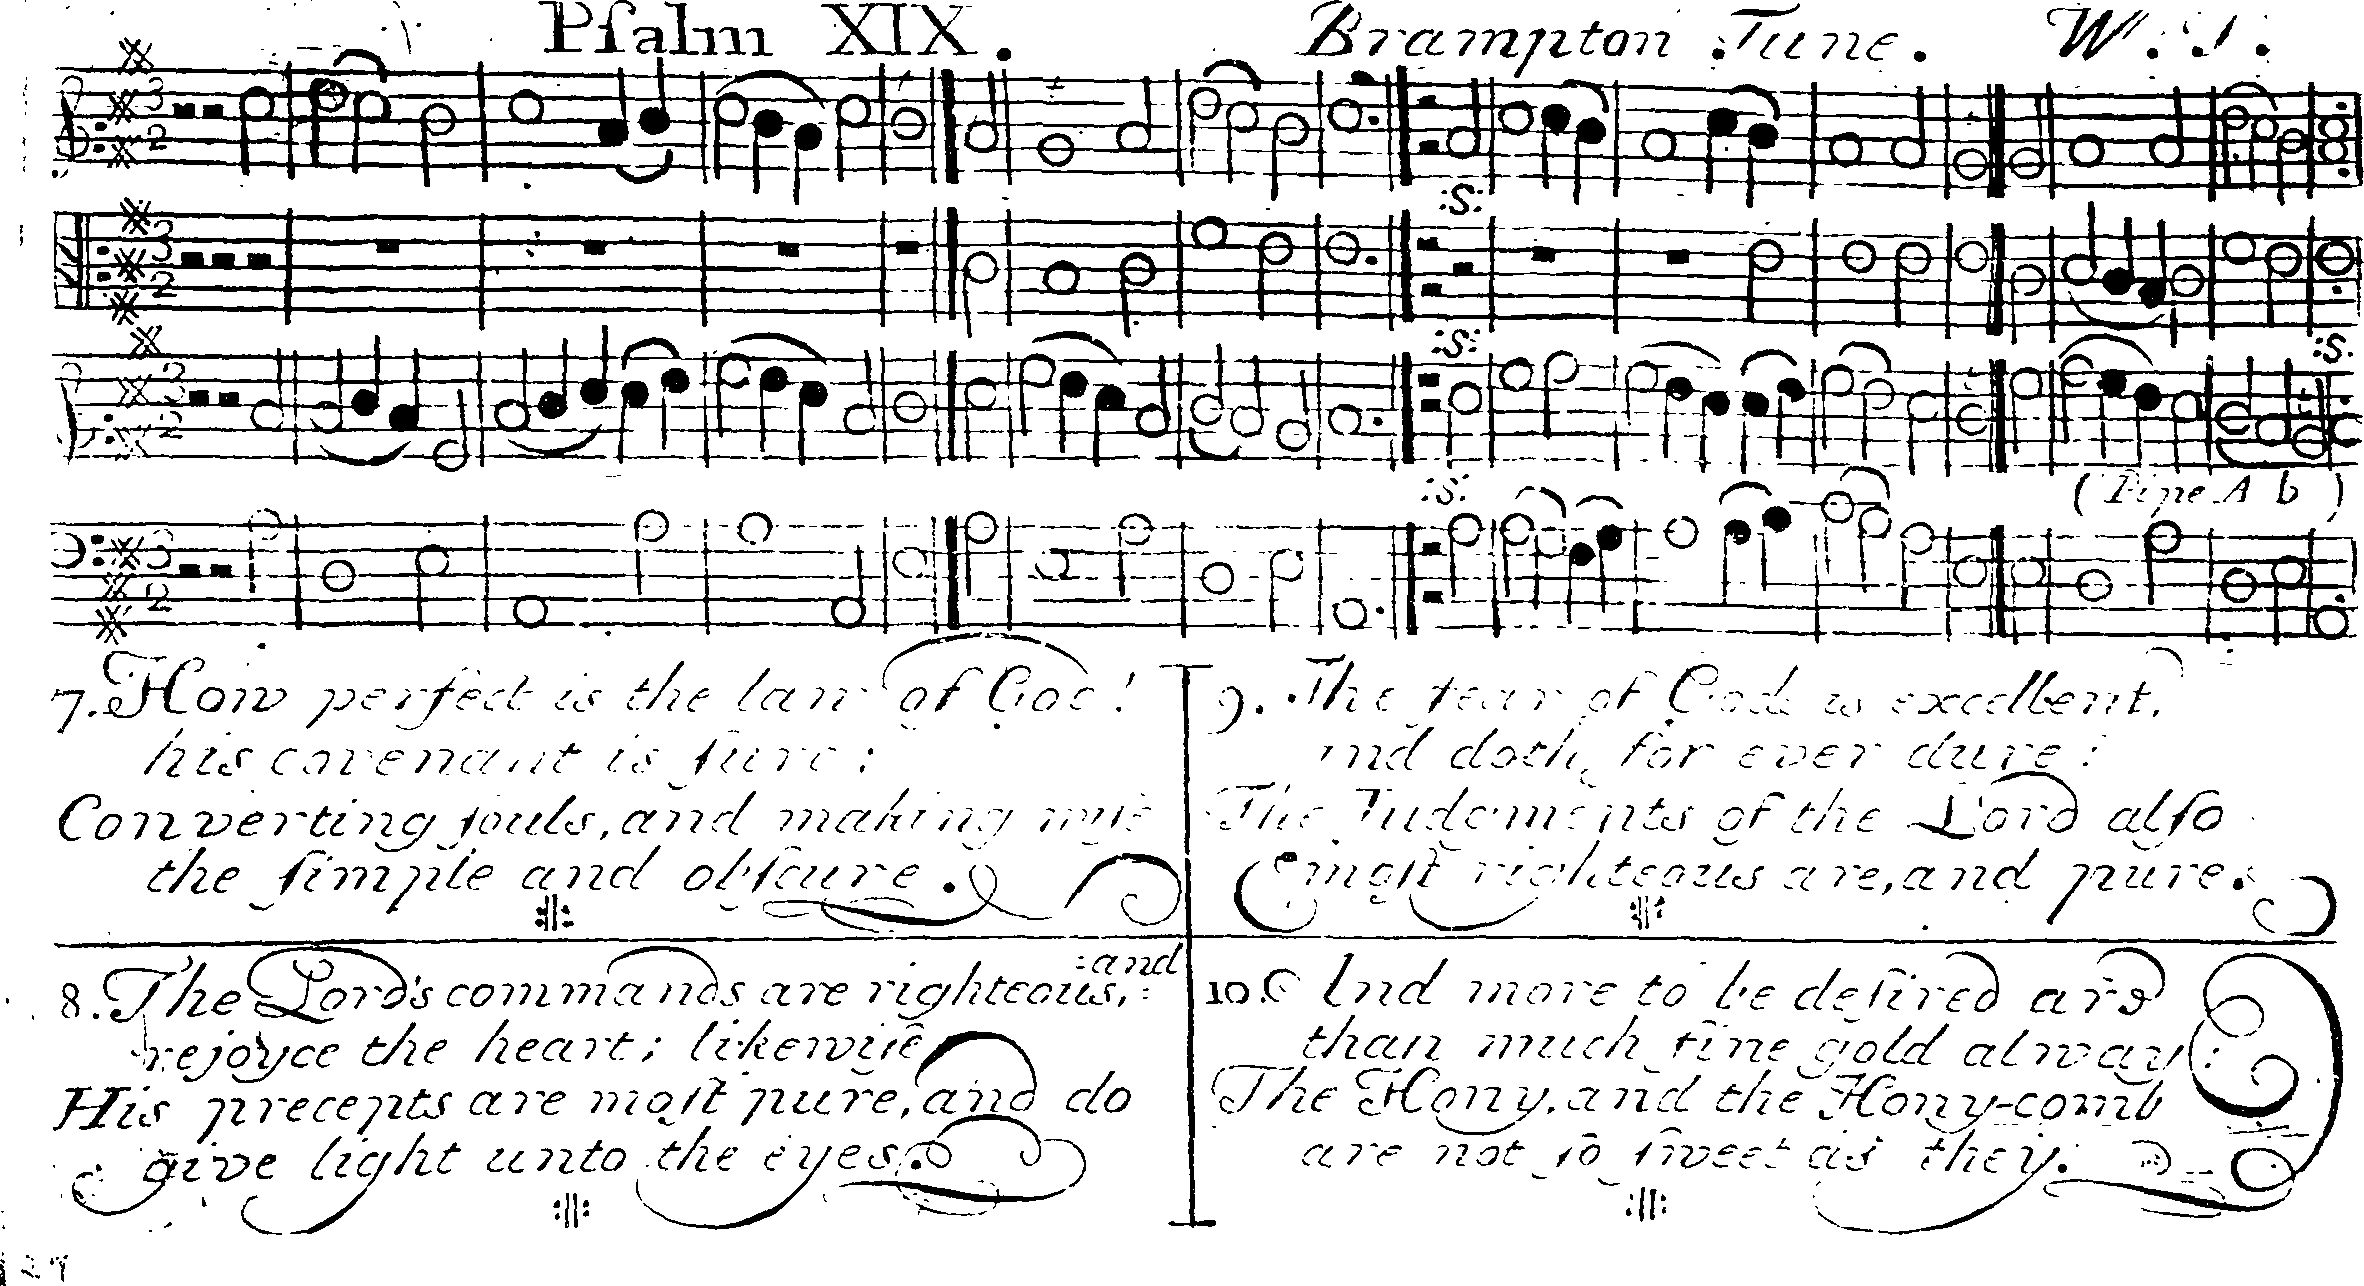 Pſalm XIX. Brampton Tune. W. J.
3
2
:S:
3
2
:S: :S.
3
2
:S: (Pipe A b)
3
2
7. How perfect is the law of God!
his covenant is ſure:
Converting ſouls, and making wiſe
the ſimple and obſcure.
8. The Lord's commands are righteous, :and
rejoyce the heart; likewiſe
His precepts are moſt pure, and do
give light unto the eyes.
9. The fear of God is excellent,
and doth for ever dure:
The Judgments of the Lord alſo
moſt righteous are, and pure.
10. And more to be deſired are
than much fine gold alway:
The Hony, and the Hony-comb
are not ſo ſweet as they.